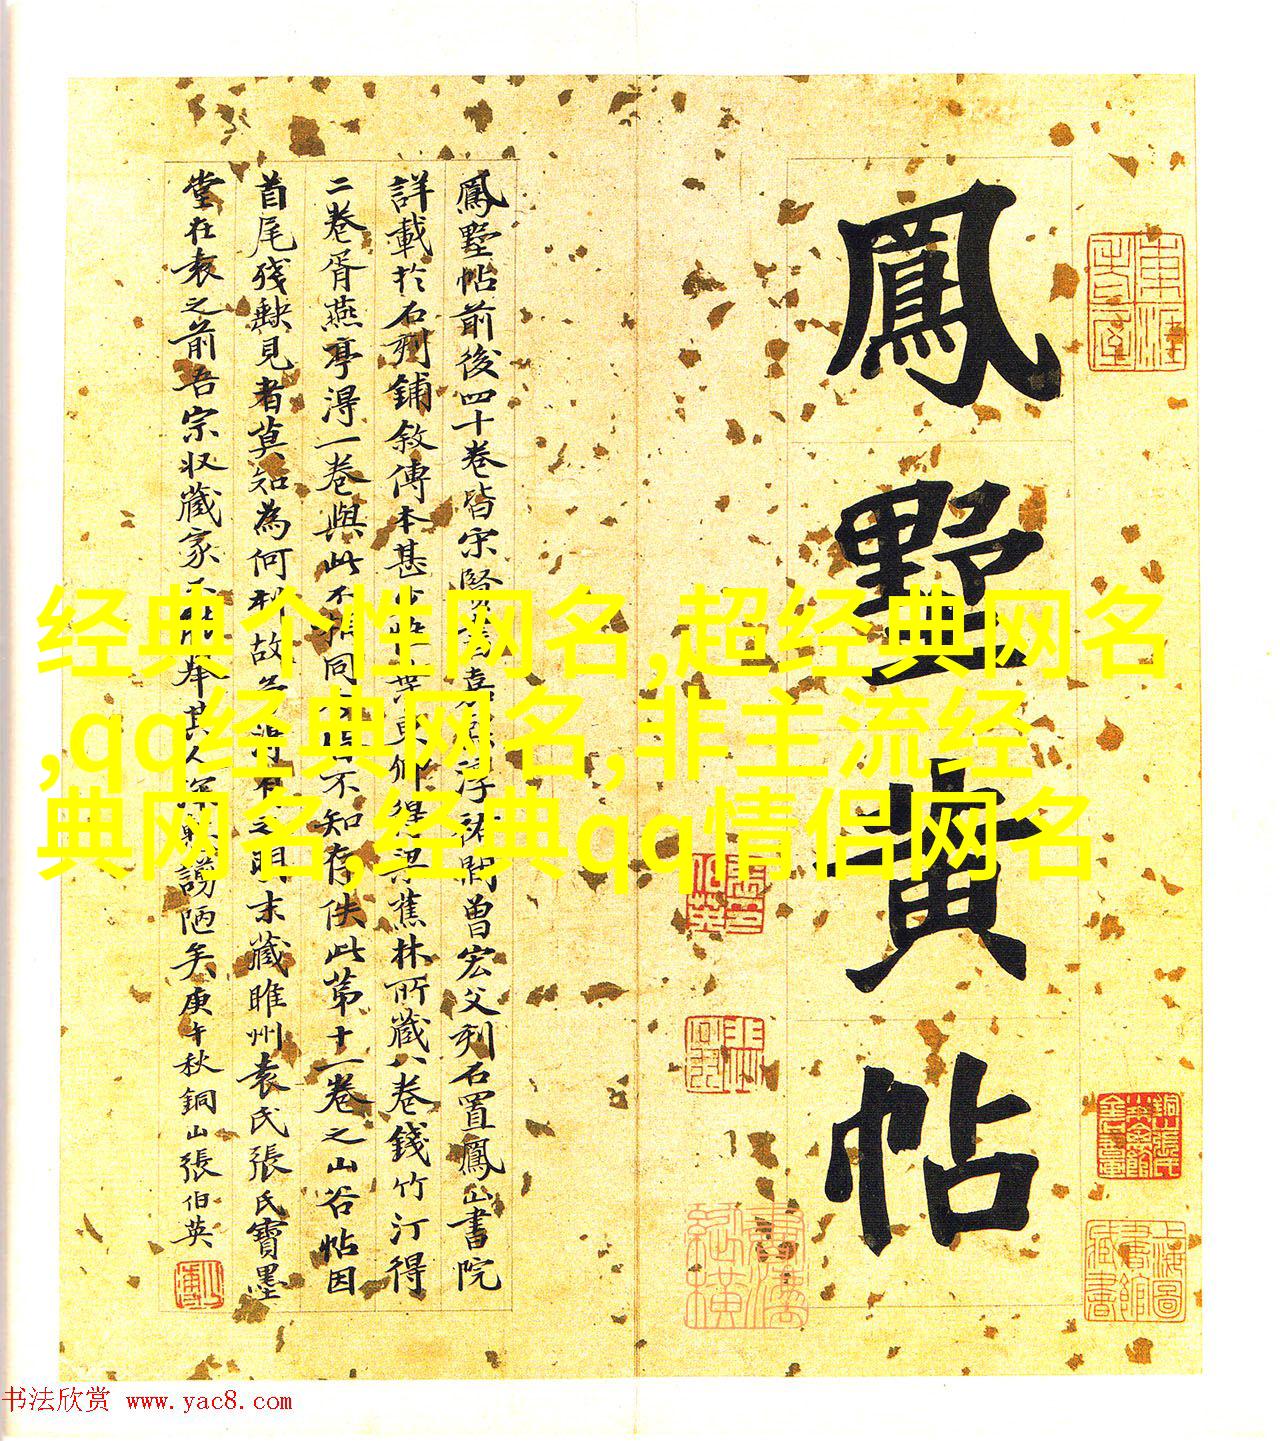 鳳墅黄帖
鳳墅帖前後四十卷皆宋賢書嘉熙淳祐間曾宏父刻石置鳳山書院
詳載於石刻鋪敘傳本甚少
得梁蕉林所藏八卷錢竹汀得
二卷胥燕亭得一卷與此不相同
不知存佚此第十一卷之山谷帖因
首尾殘缺見者莫知為何刻故
明末藏睢州袁氏張氏寶墨
堂在袁之前吾宗收藏家
舉其人
謭陋矣庚午秋銅山張伯英
经典个性网名,超经典网名
,qq经典网名,非主流经
典网名,经典qq情侣网名
上海圖書館藏書
书法欣赏 www.yac8.com